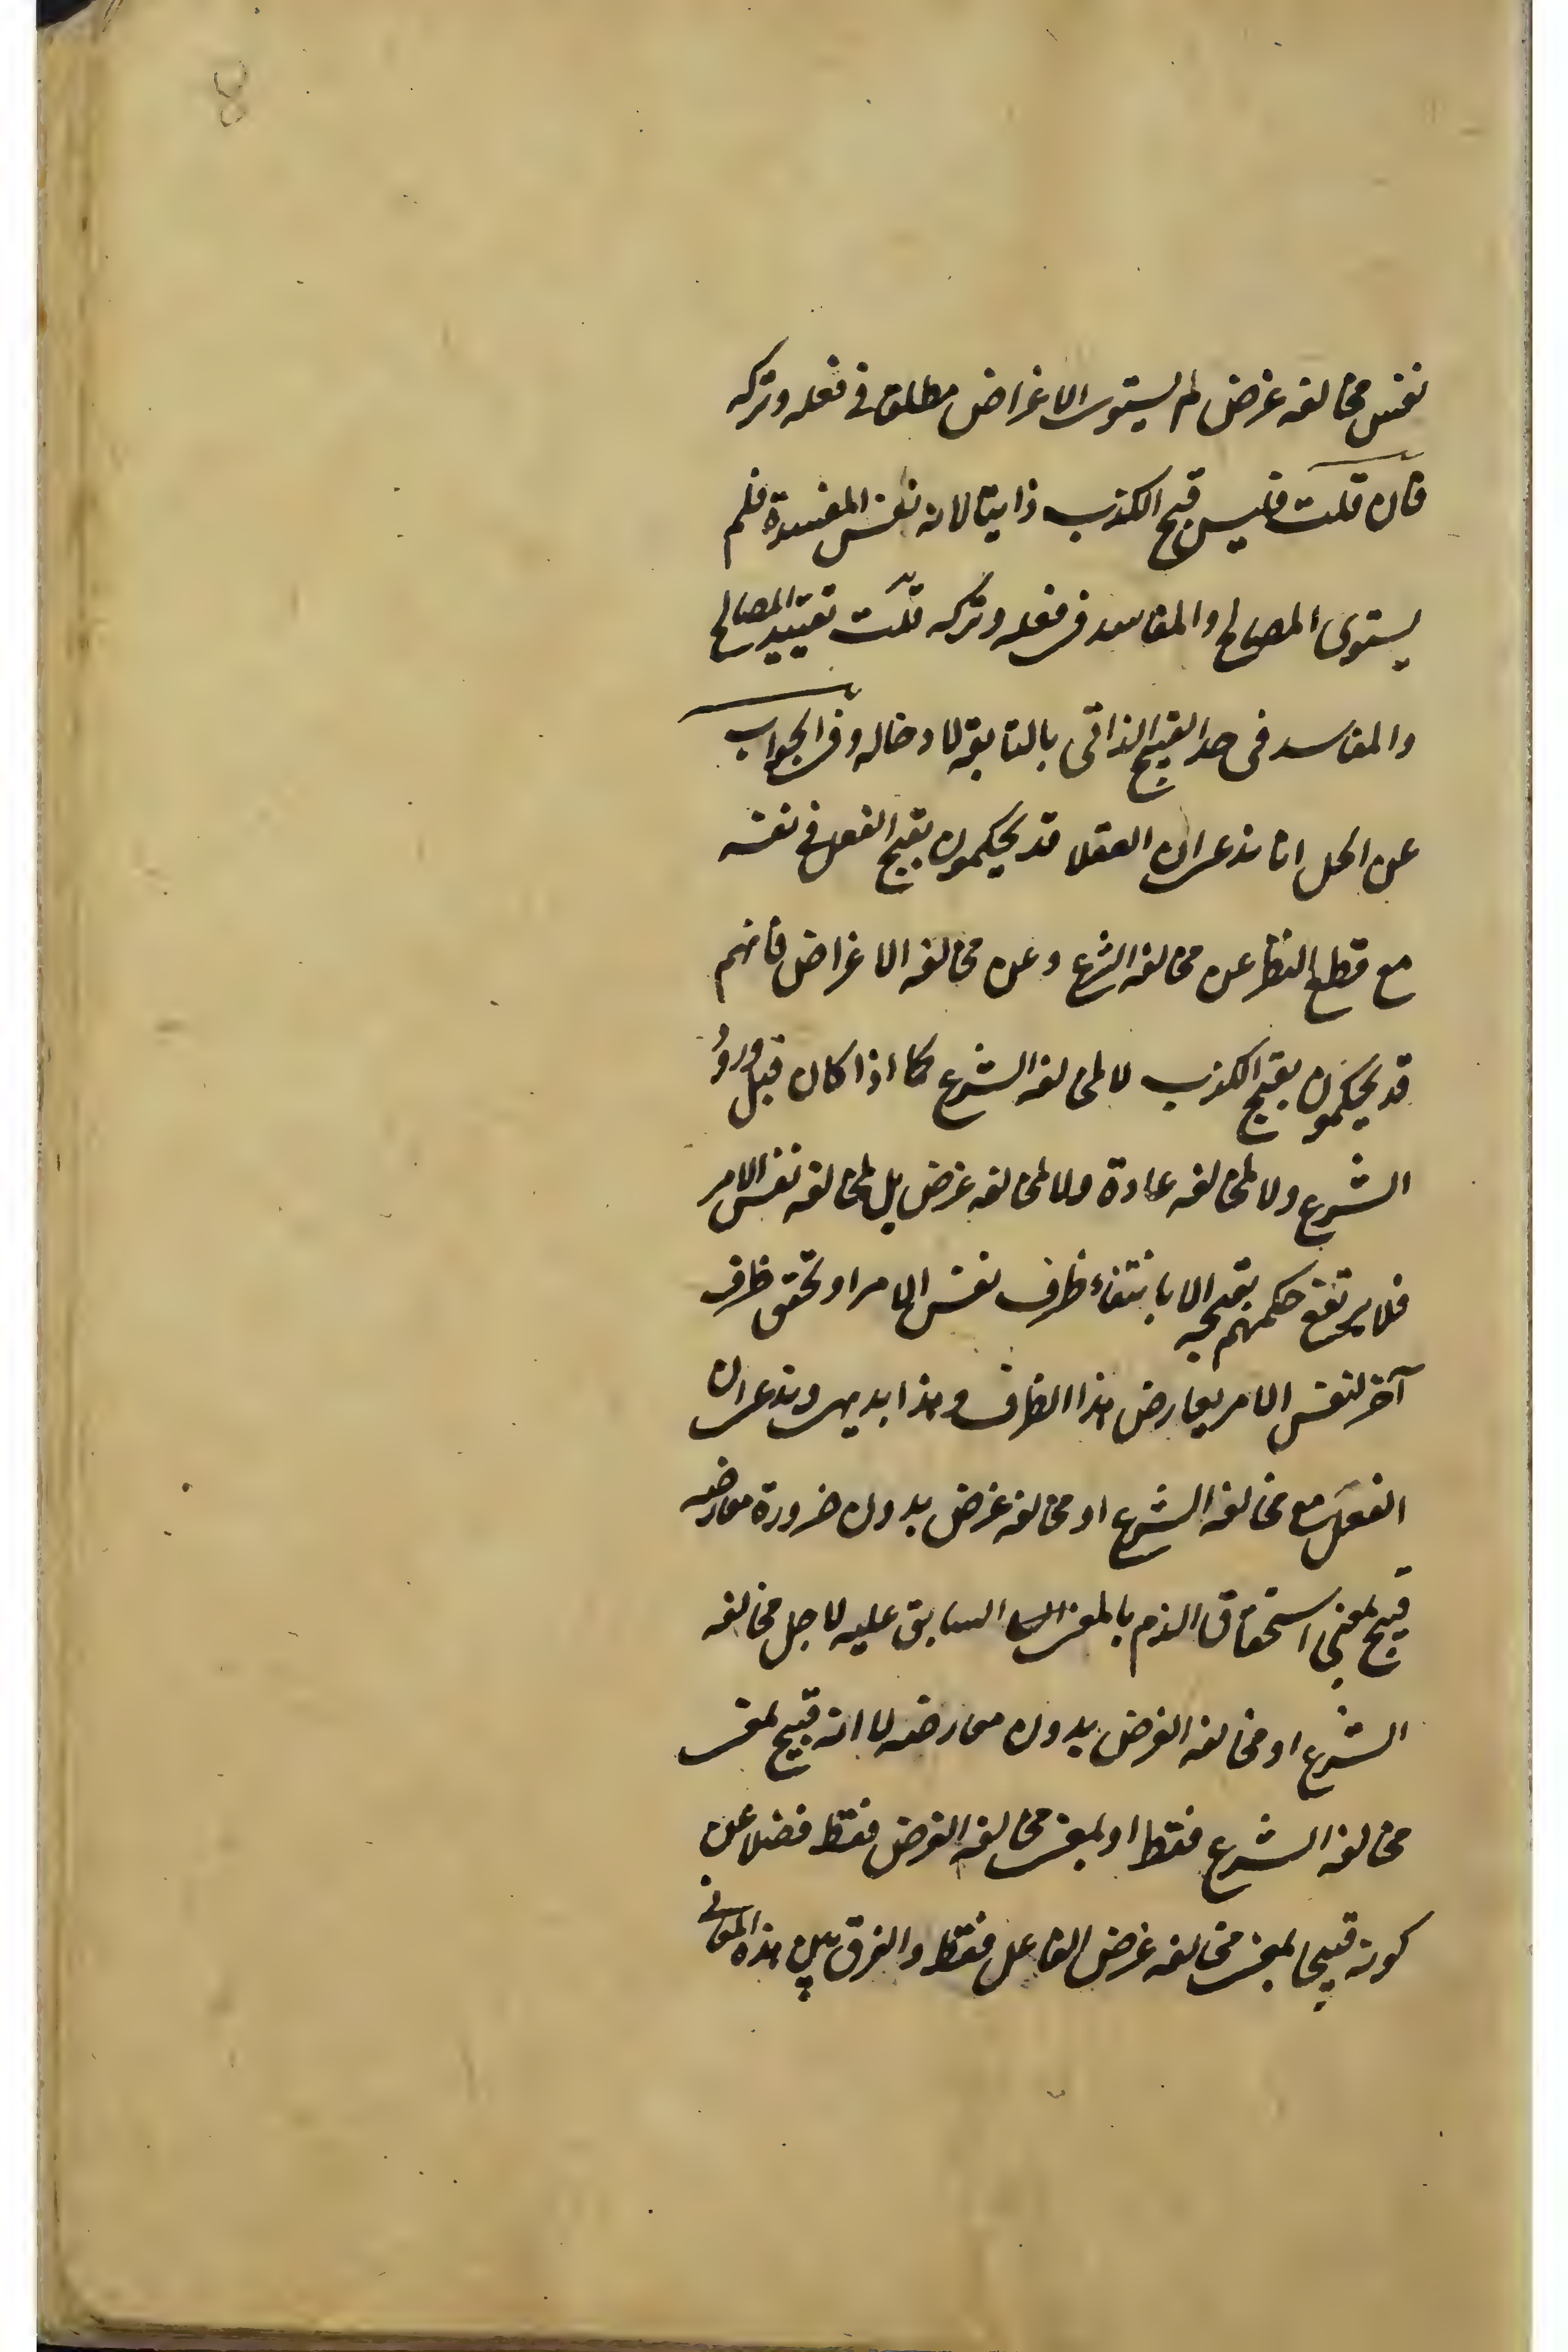 نفس مخالفه غرض لم يستوى الاغراض مطلق فى فعله وتركه
فان قلت فليس قبح الكذب ذاتيا لانه نفس المفسدة فلم
يستوى المصالح والمفاسد فى فعله وتركه قلت تقييد المصالح
والمفاسد فى حد القبيح الذاتى بالتابعة لادخاله وفى الجواب
عن الحل انا ندعى ان العقلا قد يحكمون بقبح الفعل فى نفسه
مع قطع النظر عن مخالفه الشرع وعن مخالفه الاغراض فانهم
قد يحكمون بقبح الكذب لا لمخالفه الشرع كما اذا كان قبل ورود
الشرع ولا لمخالفه عادة ولا لمخالفه غرض بل لمخالفه نفس الامر
فلا يرتفع حكمهم بقبحه الا بانتفاء ظرف نفس الامر او تحقق ظرف
آخر لنفس الامر يعارض هذا الظرف وهذا بديهى وندعى ان
الفعل مع مخالفه الشرع او مخالفه غرض بدون ضرورة معارضه
قبيح بمعنى استحقاق الذم بالمعنى السابق عليه لاجل مخالفه
الشرع او مخالفه الغرض بدون معارضه لا انه قبيح بمعنى
مخالفه الشرع فقط او بمعنى مخالفه الغرض فقط فضلا عن
كونه قبيحا بمعنى مخالفه غرض الفاعل فقط والفرق بين هذه المعانى